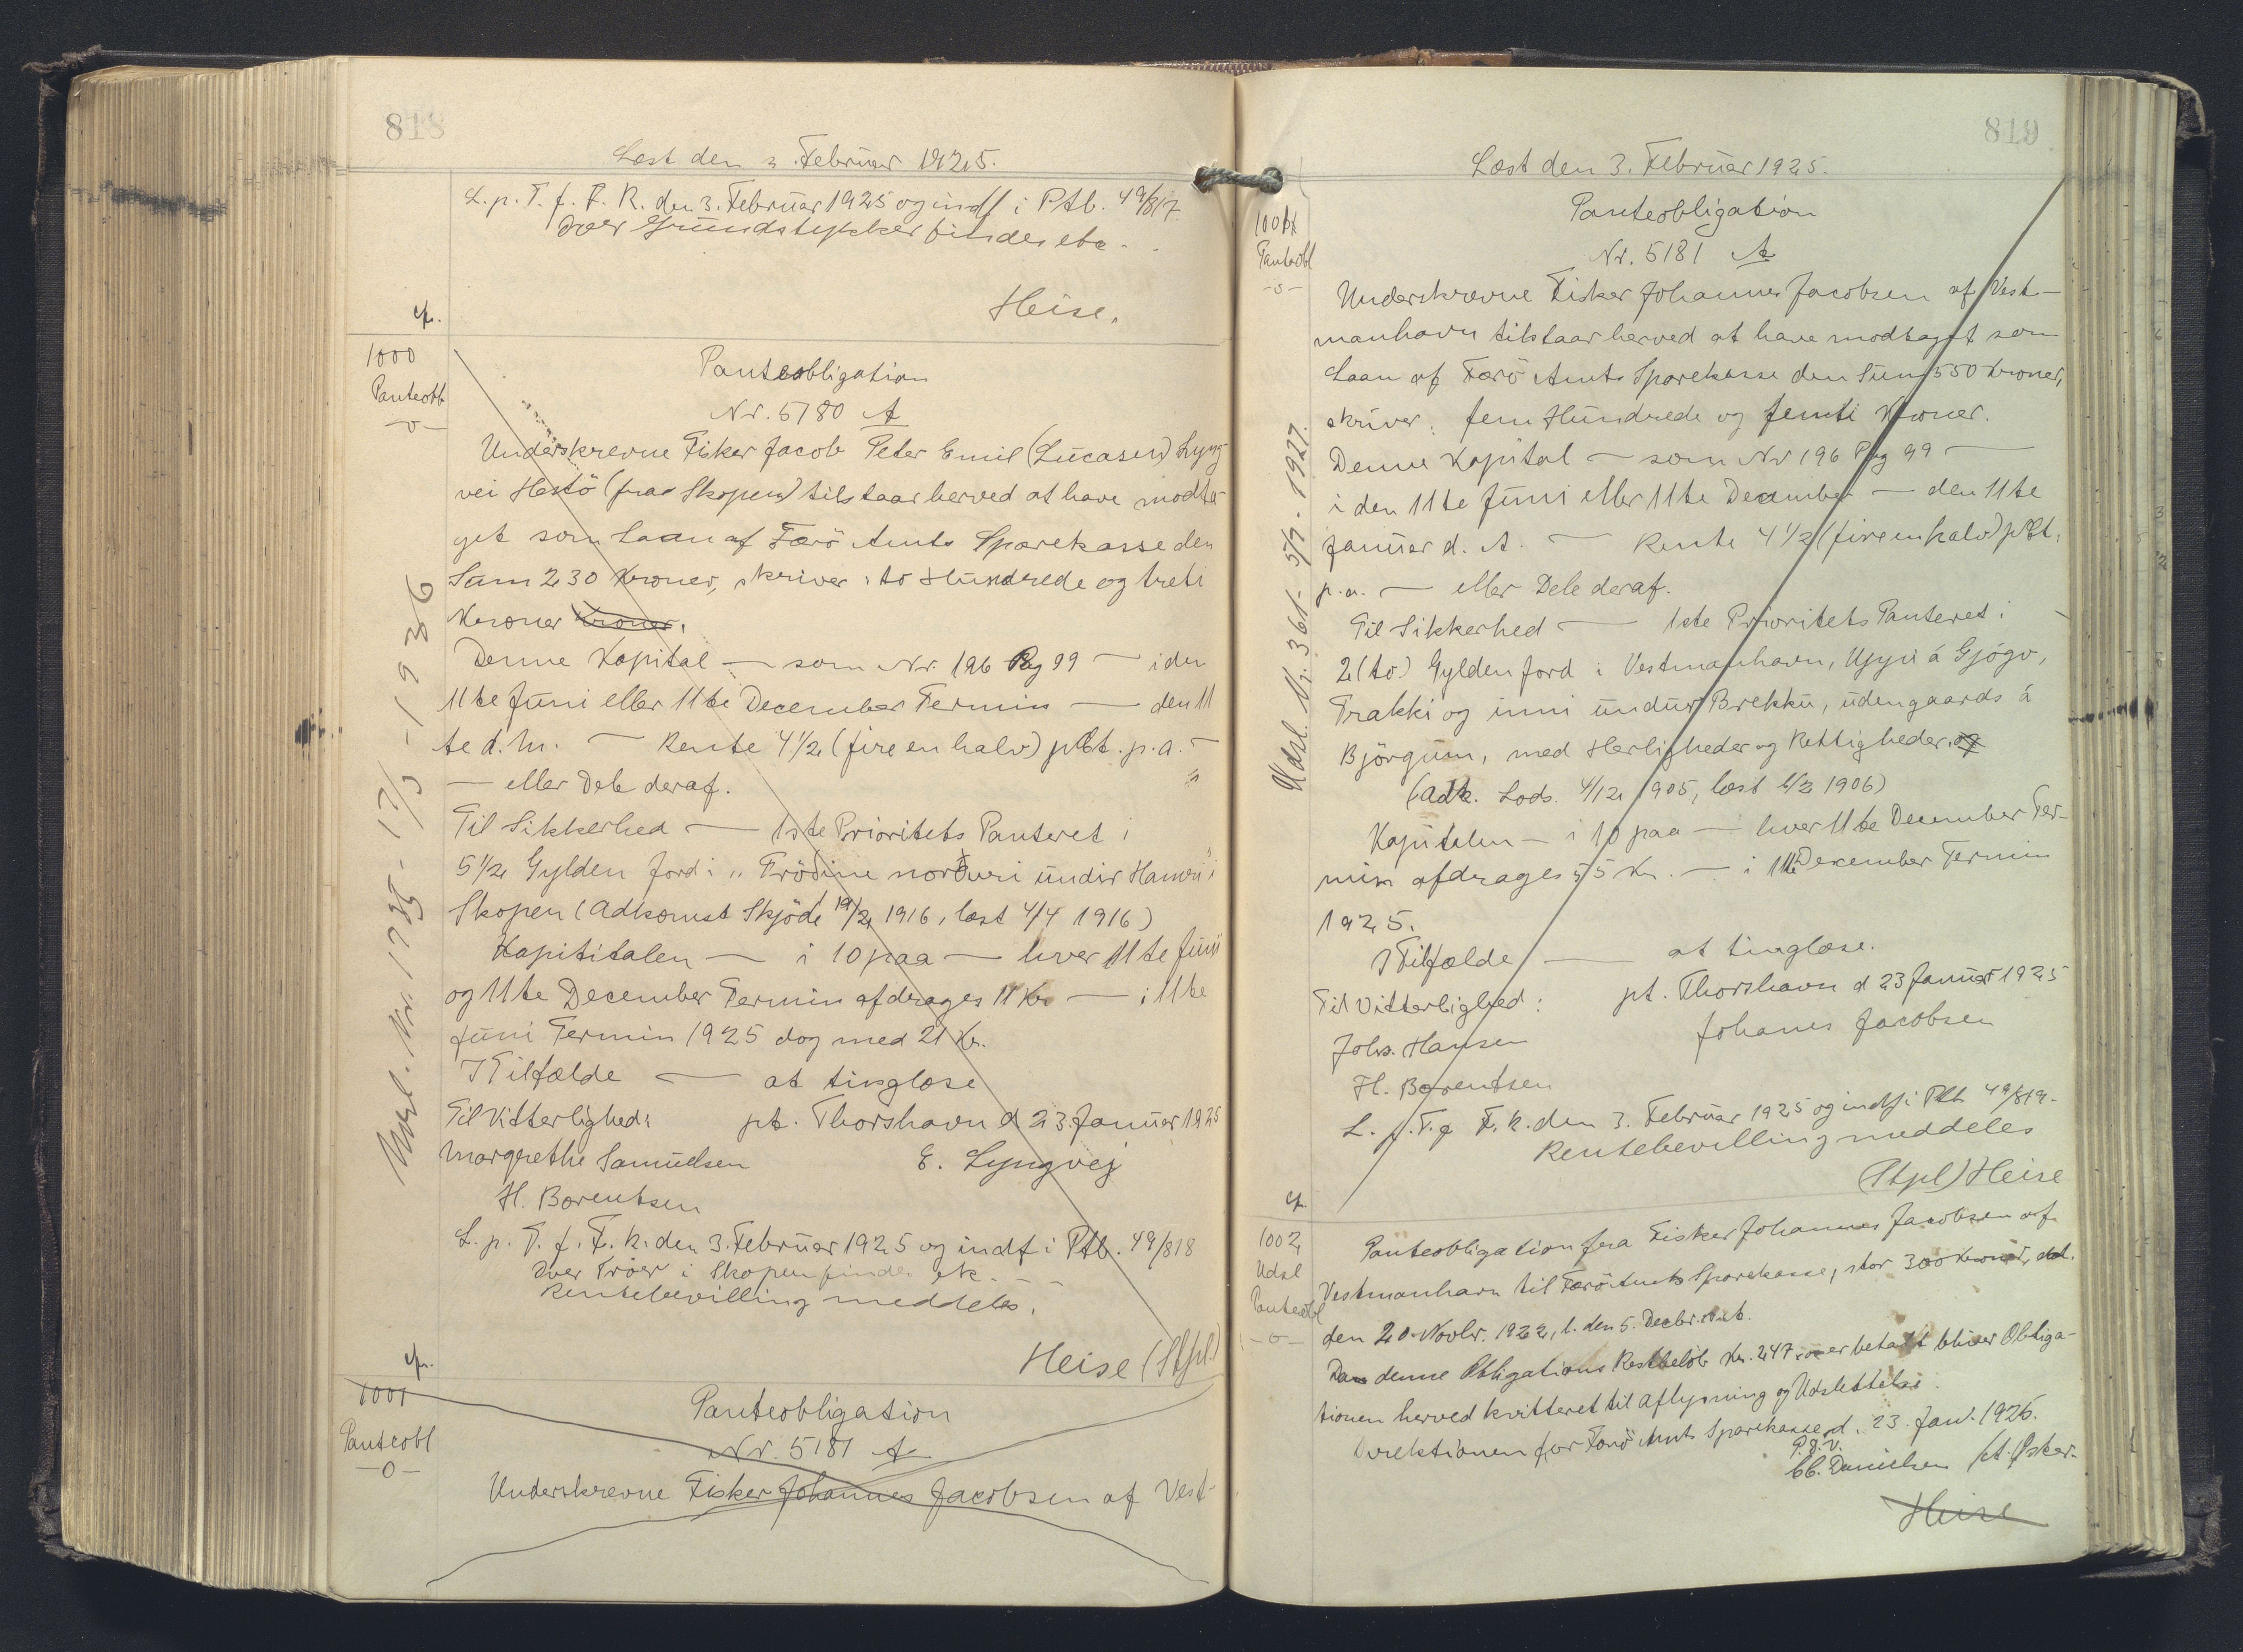 818
Læst den 3. Februar 1925.
L. p. T. f. F. R. den 3. Februar 1925 og indf i Ptb. 49/817.
Over Grundstykker findes etc. - -
Heise.
cfr.
1000
Panteobl
-o-
Panteobligation
Nr. 5180 A
Underskrevne Fisker Jacob Peter Emil (Lucasen) Lyng
vei Hestö (fra Skopen) tilstaar herved at have modta-
get som Laan af Færö Amts Sparekasse den
Sum 230 Kroner, skriver: to Hundrede og treti
Kroner Kroner.
Denne Kapital — som Nr. 196 Pag 99 — i den
11te Juni eller 11te December Termin — den 11
te d. M. — Rente 4½ (fire en halv) pCt. p.a. —
— eller Dele deraf.
Til Sikkerhed — 1ste Prioritets Panteret i
5½ Gylden Jord i "Tröðine norðuri undir Hamri" i
Skopen (Adkomst Skjöde 19/2 1916, læst 4/4 1916)
Kapititalen — i 10 paa — hver 11te Juni
og 11te December Termin afdrages 11 Kr — i 11te
Juni Termin 1925 dog med 21 Kr.
I Tilfælde — at tinglæse
Til Vitterlighed: pt. Thorshavn d 23. Januar 1925
Margrethe Samuelsen E. Lyngvej
H. Barentsen
L. p. T. f. F. R. den 3. Februar 1925 og indf i Ptb. 49/818
Over Tröer i Skopen findes etc. - -
Rentebevilling meddeles.
Heise (Stpl.)
Udsl. Nr. 1735 - 17/5 - 1936
cfr.
1001
Panteobl
-o-
Panteobligation
Nr. 5181 A
Underskrevne Fisker Johannes Jacobsen af Vest-
819
Læst den 3. Februar 1925.
1001
Panteobl
-o-
Panteobligation
Nr. 5181 A
Underskrevne Fisker Johannes Jacobsen af Vest-
manhavn tilstaar herved at have modtaget som
Laan af Færö Amts Sparekasse den Sum 550 Kroner,
skriver: fem Hundrede og femti Kroner.
Denne Kapital — som Nr 196 Pag 99 —
i den 11te Juni eller 11te December — den 11te
Januar d. A. — Rente 4½ (fire en halv) pCt.
p.a. — eller Dele deraf.
Til Sikkerhed — 1ste Prioritets Panteret i
2 (to) Gylden Jord i Vestmanhavn, Uppi á Gjógv,
Trakki og inni undur Brekku, udengaards á
Björgum, med Herligheder og Rettigheder. og
(Adk. Lods. 4/12 1905, læst 1/2 1906)
Kapitalen — i 10 paa — hver 11te December Ter-
min afdrages 55 Kr. — i 11te December Termin
1925.
I Tilfælde — at tinglæse.
Til Vitterlighed: pt. Thorshavn d 23 Januar 1925
Johs. Hansen Johanes Jacobsen
H. Barentsen
L. p. T. f F. R. den 3. Februar 1925 og indf i Ptb 49/819.
Rentebevilling meddeles
(Stpl) Heise
Udsl. Nr. 361 - 5/7 - 1927.
cfr.
1002
Udsl
Panteobl
-o-
Panteobligation fra Fisker Johannes Jacobsen af
Vestmanhavn til Færö Amts Sparekasse, stor 300 Kroner, dat.
den 20. Novbr. 1922, l. den 5. Decbr.
Da denne Obligations Restbelöb Kr. 247.00 er betalt bliver Obliga-
tionen herved kvitteret til Aflysning og Udslettelse.
Direktionen for Færö Amts Sparekasse, d. 23. Jan. 1926.
P. D. V.
Chr. Danielsen
Heise